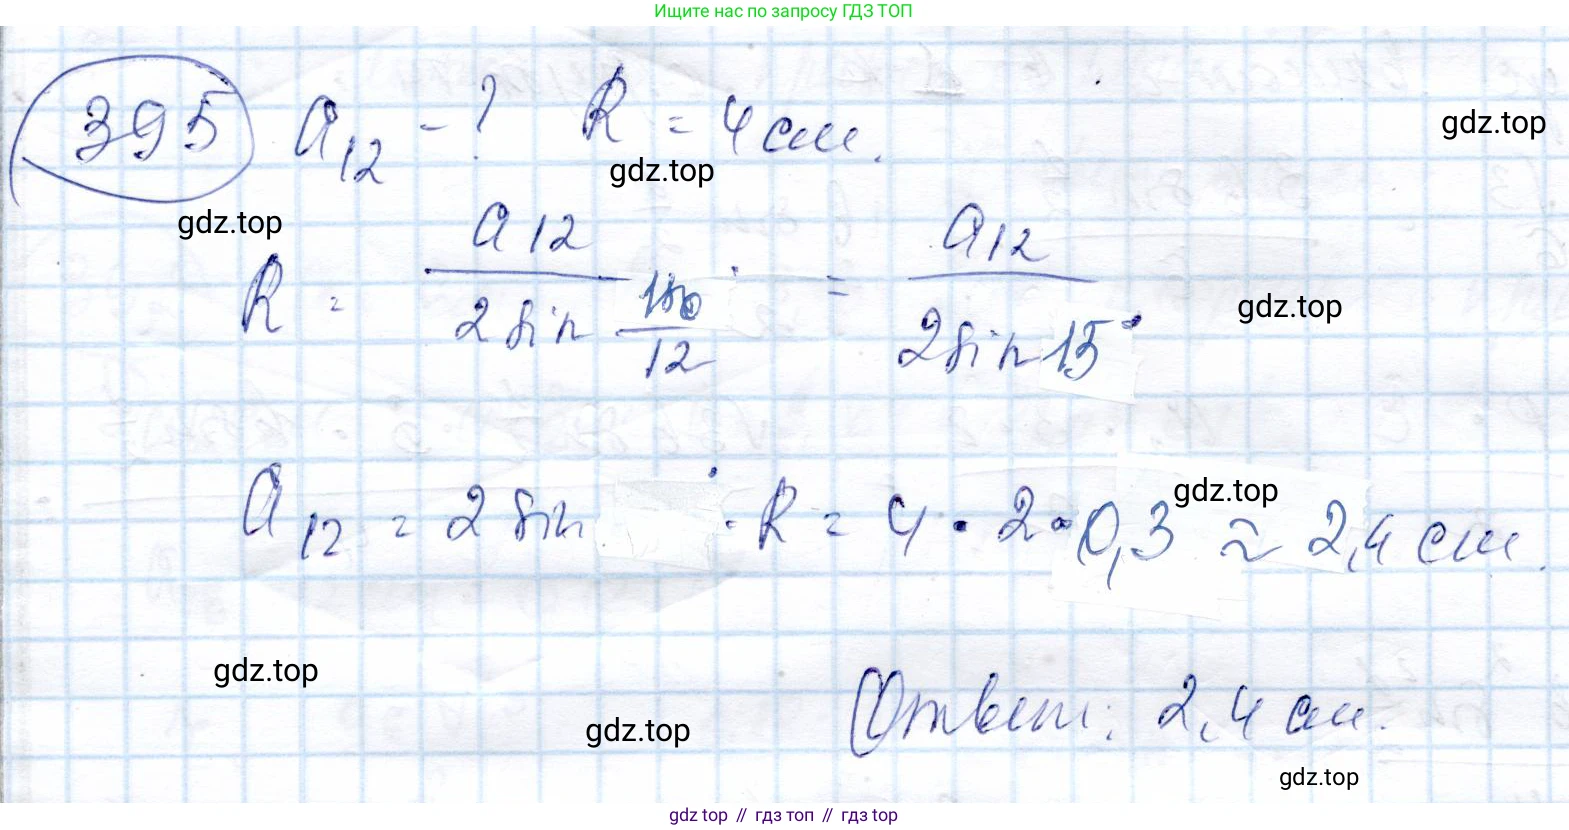 Ищите нас по запросу ГДЗ ТОП
395 a₁₂ - ? R = 4 см.
gdz.top
gdz.top
gdz.top
R = a₁₂ / (2 sin 180/12°) = a₁₂ / (2 sin 15°)
gdz.top
gdz.top
a₁₂ = 2 sin ° · R = 4 · 2 · 0,3 ≈ 2,4 см.
gdz.top
Ответ: 2,4 см.
gdz.top
gdz.top
gdz top // гдз топ // гдз top